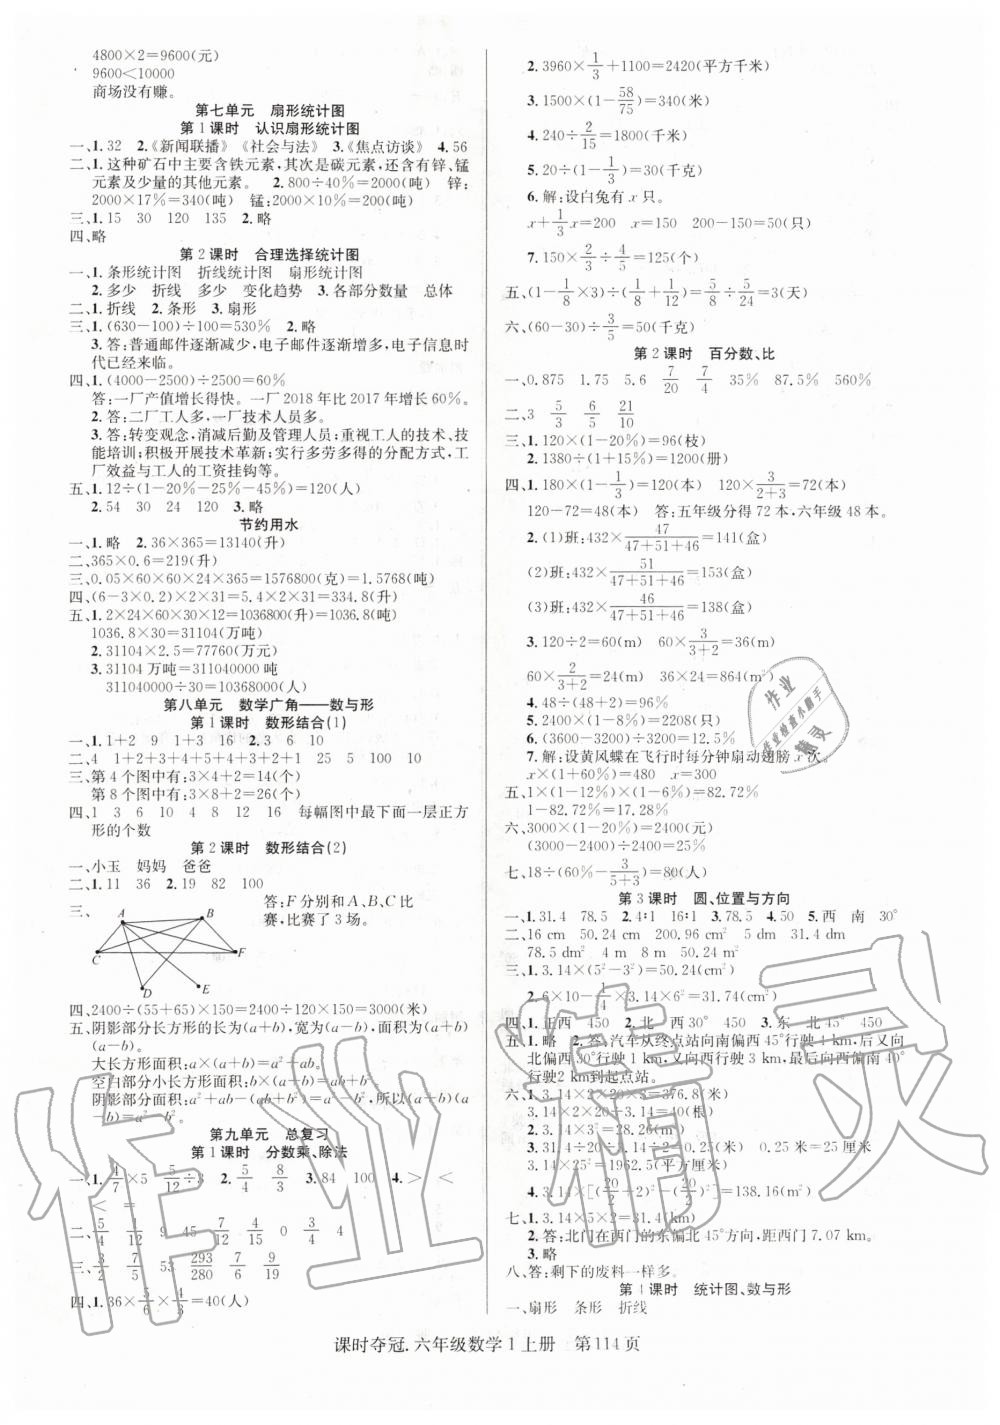 4800×2=9600(元)
9600<10000
商场没有赚。
第七单元　扇形统计图
第1课时　认识扇形统计图
一、1.32　2.《新闻联播》《社会与法》　3.《焦点访谈》　4.56
二、1.这种矿石中主要含铁元素,其次是碳元素,还含有锌、锰
元素及少量的其他元素。　2.800÷40%=2000(吨)　锌:
2000×17%=340(吨)　锰:2000×10%=200(吨)
三、1.15　30　120　135　2.略
四、略
第2课时　合理选择统计图
一、1.条形统计图　折线统计图　扇形统计图
2.多少　折线　多少　变化趋势　3.各部分数量　总体
二、1.折线　2.条形　3.扇形
三、1.(630-100)÷100=530%　2.略
3.答:普通邮件逐渐减少,电子邮件逐渐增多,电子信息时
代已经来临。
四、1.(4000-2500)÷2500=60%
答:一厂产值增长得快。一厂2018年比2017年增长60%。
2.答:二厂工人多,一厂技术人员多。
3.答:转变观念,消减后勤及管理人员;重视工人的技术、技
能培训;积极开展技术革新;实行多劳多得的分配方式,工
厂效益与工人的工资挂钩等。
五、1.12÷(1-20%-25%-45%)=120(人)
2.54　30　24　120　3.略
节约用水
一、1.略　2.36×365=13140(升)
二、365×0.6=219(升)
三、0.05×60×60×24×365=1576800(克)=1.5768(吨)
四、(6-3×0.2)×2×31=5.4×2×31=334.8(升)
五、1.2×24×60×30×12=1036800(升)=1036.8(吨)
1036.8×30=31104(万吨)
2.31104×2.5=77760(万元)
3.31104万吨=311040000吨
311040000÷30=10368000(人)
第八单元　数学广角——数与形
第1课时　数形结合(1)
一、1.1+2　9　1+3　16　2.3　6　10
二、4　1+2+3+4+5+4+3+2+1　25　5　100　10
三、第4个图中有:3×4+2=14(个)
第8个图中有:3×8+2=26(个)
四、1　3　6　10　4　8　12　16　每幅图中最下面一层正方
形的个数
第2课时　数形结合(2)
一、小玉　妈妈　爸爸
二、1.11　36　2.19　82　100
三、
A　B　C　F　D　E
答:F分别和A、B、C比
赛,比赛了3场。
四、2400÷(55+65)×150=2400÷120×150=3000(米)
五、阴影部分长方形的长为(a+b),宽为(a-b),面积为(a+b)
(a-b)。
大长方形面积:a×(a+b)=a²+ab。
空白部分小长方形面积:b×(a+b)=ab+b²
阴影部分面积:a²+ab-(ab+b²)=a²-b²,所以(a+b)
(a-b)=a²-b²。
第九单元　总复习
第1课时　分数乘、除法
一、1.4/7×5　5/12÷3　2.5/4　8/3　3.84　100　4.>　<
<　=　<
二、5/4　1/12　9　45　7/15　4/21　0　3/4　4
三、3/2　7/5　53　293/280　7/6　9/19
四、1.36×5/6×4/3=40(人)
2.3960×1/3+1100=2420(平方千米)
3.1500×(1-58/75)=340(人)
4.240÷2/15=1800(千米)
5.20÷(1-1/3)=30(千克)
6.解:设白兔有x只。
x+1/3x=200　x=150　200-150=50(只)
7.150×2/3÷4/5=125(个)
五、(1-1/8×3)÷(1/8+1/12)=5/8÷5/24=3(天)
六、(60-30)÷3/5=50(千克)
第2课时　百分数、比
一、0.875　1.75　5.6　7/20　7/4　35%　87.5%　560%
二、3　5/3　6/5　21/10
三、1.120×(1-20%)=96(枝)
2.1380÷(1+15%)=1200(册)
四、1.180×(1-1/3)=120(本)　120×3/(2+3)=72(本)
120-72=48(本)　答:五年级分得72本,六年级48本。
2.(1)班:432×47/(47+51+46)=141(盒)
(2)班:432×51/(47+51+46)=153(盒)
(3)班:432×46/(47+51+46)=138(盒)
3.120÷2=60(m)　60×3/(3+2)=36(m)
60×2/(3+2)=24(m)　36×24=864(m²)
4.48÷(48+2)=96%
5.2400×(1-8%)=2208(只)
6.(3600-3200)÷3200=12.5%
7.解:设黄凤蝶在飞行时每分钟扇动翅膀x次。
x×(1+60%)=480　x=300
五、1×(1-12%)×(1-6%)=82.72%
1-82.72%=17.28%
六、3000×(1-20%)=2400(元)
(3000-2400)÷2400=25%
七、18÷(60%-3/(5+3))=80(人)
第3课时　圆、位置与方向
一、1.31.4　78.5　2.4∶1　16∶1　3.78.5　4.50　5.西　南　30°
二、16 cm　50.24 cm　200.96 cm²　5 dm　31.4 dm
78.5 dm²　4 m　8 m　50.24 m²
三、1.3.14×(5²-3²)=50.24(cm²)
2.6×10-1/4×3.14×6²=31.74(cm²)
四、1.正西　450　2.北　西30°　450　3.东　北45°　450
五、1.略　2.答:汽车从终点站向南偏西45°行驶4 km,后又向
北偏西30°行驶1 km,又向西行驶3 km,最后向西偏南40°
行驶2 km到起点站。
六、1.3.14×2×20×3=376.8(米)
3.14×2×20÷3.14=40(根)
2.3.14×3²=28.26(m²)
3.31.4÷20÷3.14÷2=0.25(米)　0.25米=25厘米
3.14×25²=1962.5(平方厘米)
4.3.14×[(20/2+2)²-(20/2)²]=138.16(m²)
七、1.3.14×5×2=31.4(km)
2.答:北门在西门的东偏北45°方向,距西门7.07 km。
3.略
八、答:剩下的废料一样多。
第4课时　统计图、数与形
一、扇形　条形　折线
课时夺冠.六年级数学1上册　第114页
作业
作业检查小助手
精灵
作业精灵